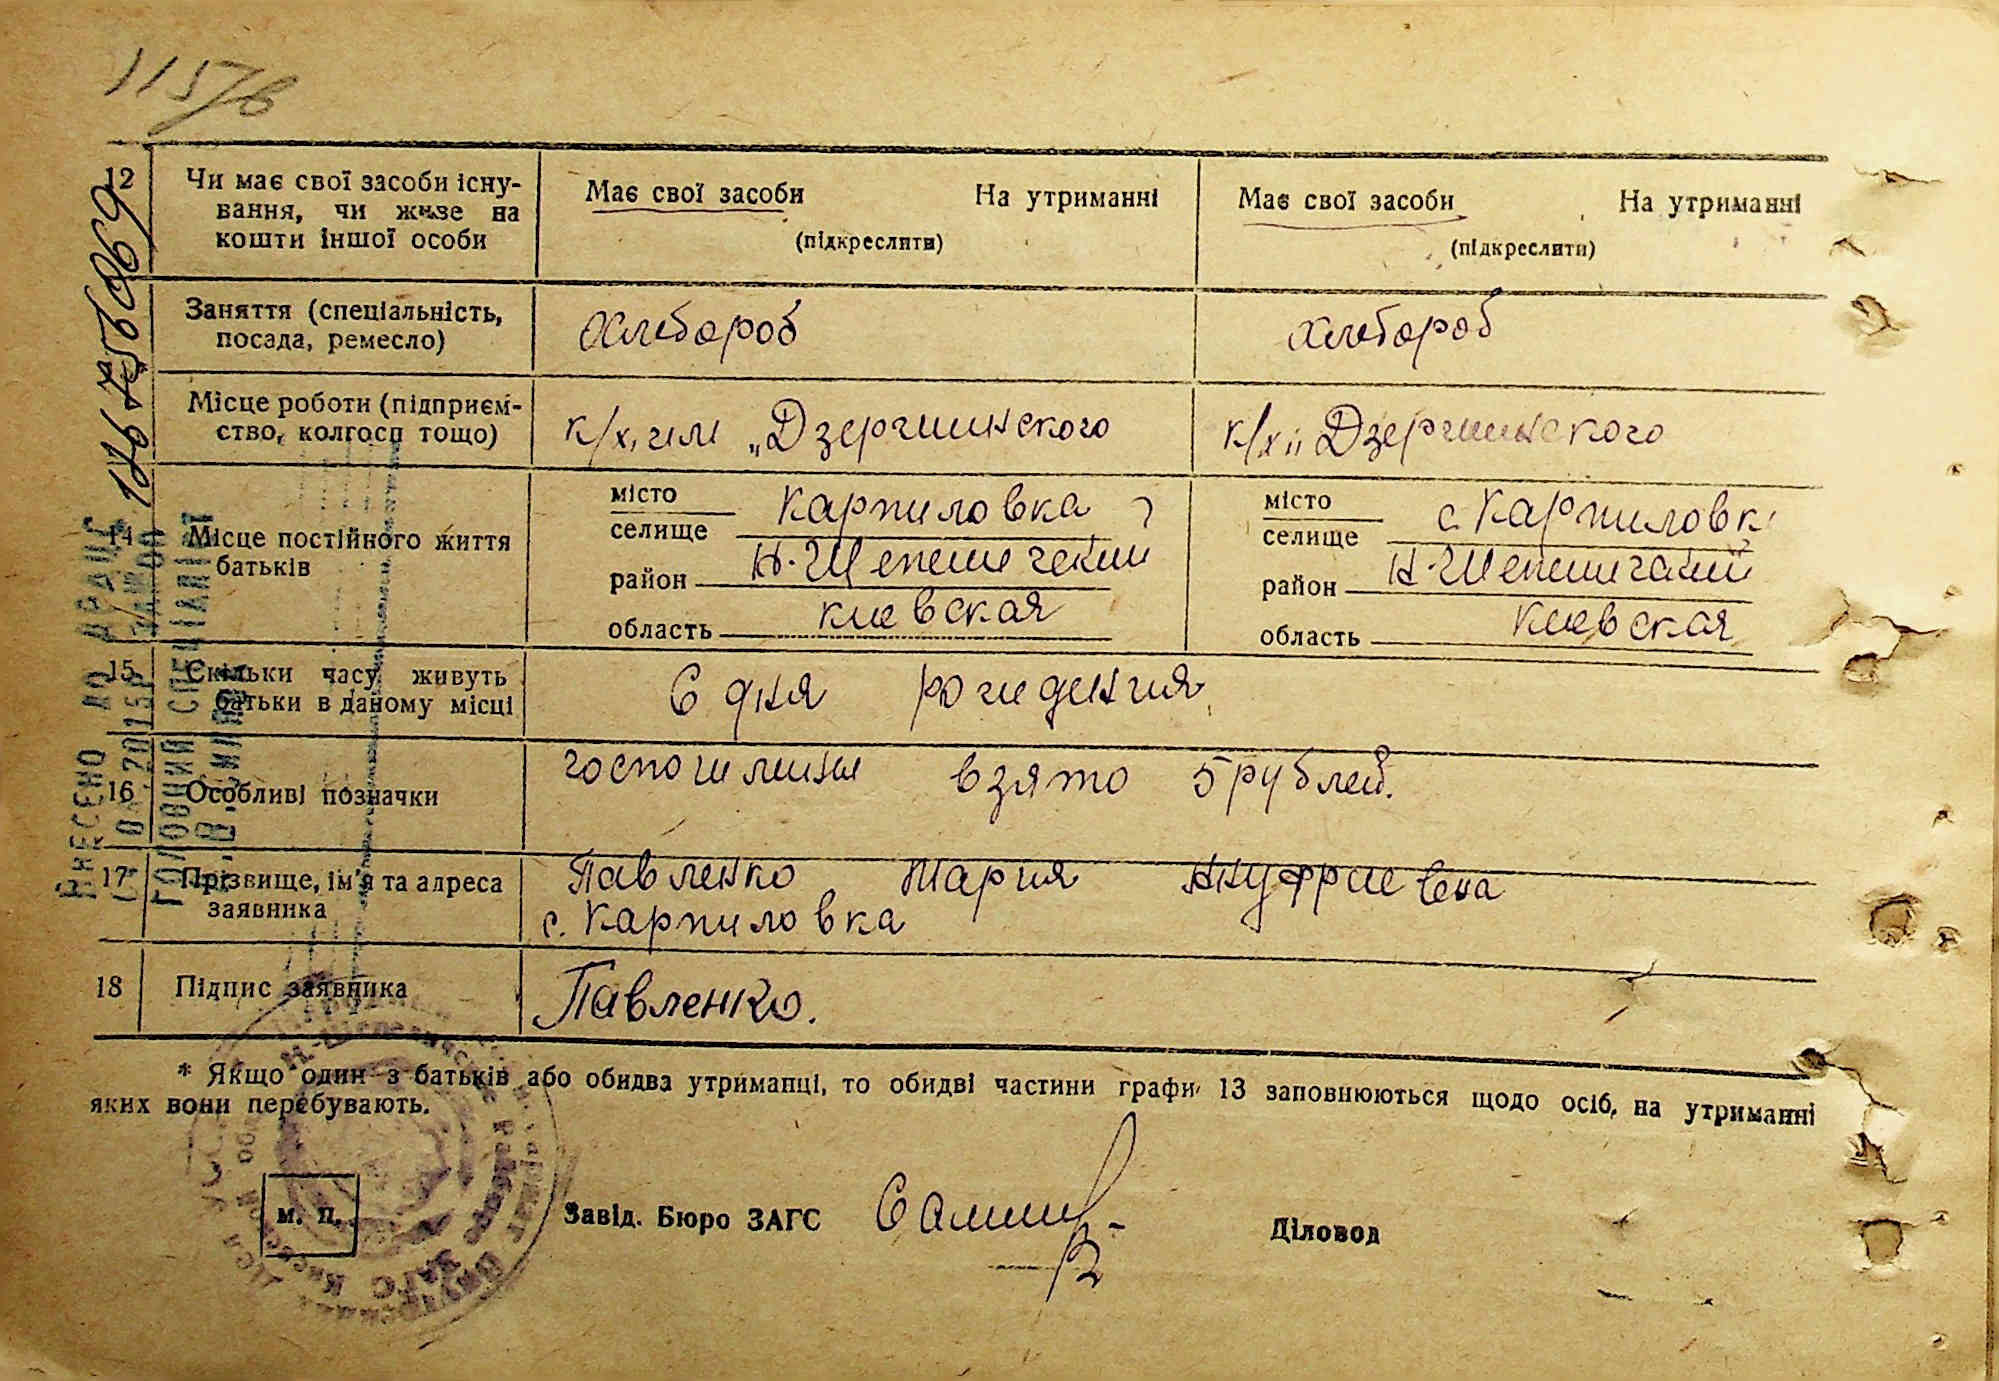 1157б
12
Чи має свої засоби існу-
вання, чи живе на
кошти іншої особи
Має свої засоби На утриманні
(підкреслити)
Має свої засоби На утриманні
(підкреслити)
Заняття (спеціальність,
посада, ремесло)
Хлебороб
хлебороб
Місце роботи (підприєм-
ство, колгосп тощо)
к/х. им „Дзержинского
к/х и Дзержинского
14
Місце постійного життя
батьків
місто
селище
Карпиловка
район Н-Шепеличский
область киевская
місто
селище
с. Карпиловк
район Н-Шепеличский
область киевская
15
Скільки часу живуть
батьки в даному місці
С дня рождения
16
Особливі позначки
госпошлины взято 5 рублей.
17
Прізвище, ім'я та адреса
заявника
Павленко Мария Ануфриевна
с. Карпиловка
18
Підпис заявника
Павленко.
* Якщо один з батьків або обидва утриманці, то обидві частини графи 13 заповнюються щодо осіб, на утриманні
яких вони перебувають.
м. п.
Завід. Бюро ЗАГС
Діловод
ВНЕСЕНО ДО ДРАЦС
ГОЛОВНИЙ СПЕЦІАЛІСТ